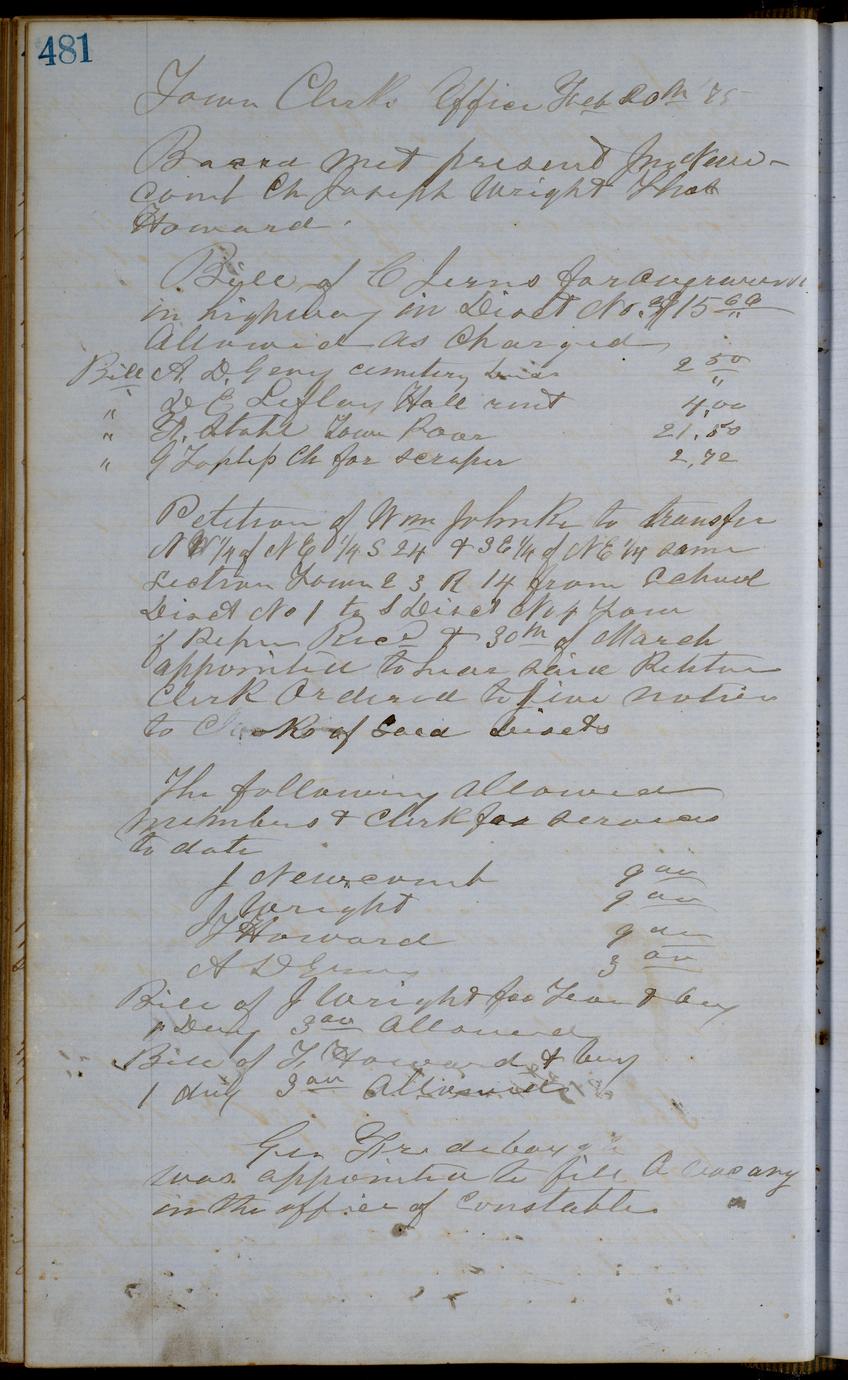 481
Town Clerks Office Feb 20th '75
Board met present Jno New-
comb Ch Joseph Wright Thos
Howard.
Bill of C Jerns for
in highway in Disct No. 15
Allowed as Charged
Bill A. D. Geny cemetery 2 50
" D E Leflay Hall rent 4,00
" Stahl Town Poor 21,50
" G Ch for scraper 2,72
Petition of Wm Johnke to transfer
NW 1/4 of NE 1/4 S 24 & SE 1/4 of NE 1/4 same
section Town 23 R 14 from School
Disct No 1 to S Disct No 4
Recd & 30th of March
appointed to hear said Petition
Clerk Ordered to give notice
to of Said Disects
The following allowed
members & Clerk for services
to date
J Newcomb 9 00
J Wright 9 00
T Howard 9 00
A D 3 00
Bill of J Wright for Team & buy
3 00 Allowed
Bill of T Howard & buy
1 day 3 00 Allowed
Geo
was appointed to fill a vacany
in the office of Constable